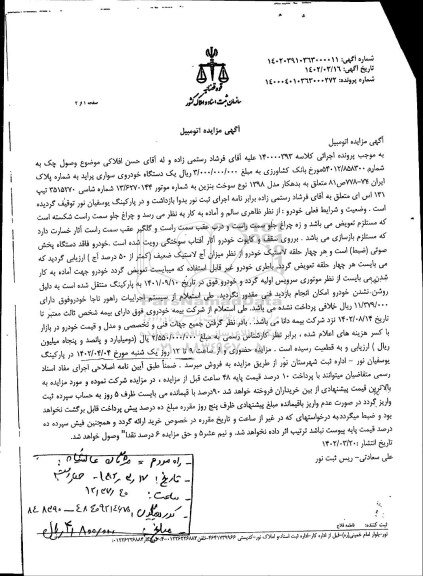 شماره آگهی: ۱۴۰۲۰۳۹۱۰۳۶۳۰۰۰۰۱۱
تاریخ آگهی: ۱۴۰۲/۰۳/۱۶
شماره پرونده: ۱۴۰۰۰۴۰۱۰۳۶۳۰۰۰۲۷۲
قوه قضائیه
سازمان ثبت اسناد و املاک کشور
صفحه ۱ از ۲
آگهی مزایده اتومبیل
آگهی مزایده اتومبیل
به موجب پرونده اجرائی کلاسه ۱۴۰۰۰۰۳۹۳ علیه آقای فرشاد رستمی زاده و له آقای حسن افلاکی موضوع وصول چک به
شماره ۵۴۰۱۲/۸۵۸۳۰۰ مورخ بانک کشاورزی به مبلغ ۳/۰۰۰/۰۰۰/۰۰۰ ریال یک دستگاه خودروی سواری پراید به شماره پلاک
ایران ۷۴-۷۷۸ص۸۱ متعلق به بدهکار مدل ۱۳۹۸ نوع سوخت بنزین به شماره موتور ۱۳/۶۲۷۰۱۴۴ شماره شاسی ۳۵۱۵۲۷۰ تیپ
۱۳۱ اس ای متعلق به آقای فرشاد رستمی زاده برابر نامه اجرای ثبت نور بدوا بازداشت و در پارکینگ یوسفیان نور توقیف گردیده
است . وضعیت و شرایط فعلی خودرو : از نظر ظاهری سالم و آماده به کار به نظر می رسد و چراغ جلو سمت راست شکسته است
که مستلزم تعویض می باشد و زه چراغ جلو سمت راست و درب عقب سمت راست و گلگیر عقب سمت راست آثار خسارت دارد
که مستلزم بازسازی می باشد . برروی سقف و کاپوت خودرو آثار آفتاب سوختگی رویت شده است .خودرو فاقد دستگاه پخش
صوتی (ضبط) است و هر چهار حلقه لاستیک خودرو از نظر میزان آج لاستیک ضعیف (کمتر از ۵۰ درصد آج ) ارزیابی گردید که
می بایست هر چهار حلقه تعویض گردد. باطری خودرو غیر قابل استفاده که میبایست تعویض گردد خودرو جهت آماده به کار
شدن می بایست از نظر موتوری سرویس اولیه گردد و خودرو فوق در تاریخ ۱۴۰۱/۰۹/۱۰ به پارکینگ منتقل شده است به دلیل
روشن نشدن خودرو امکان انجام بازدید فنی مقدور نگردید. طی استعلام از سیستم اجراییات راهور ناجا خودروفوق دارای
۱۱/۳۷۹/۰۰۰ ریال خلافی پرداخت نشده می باشد. طی استعلام از شرکت بیمه خودروی فوق دارای بیمه شخص ثالث معتبر تا
تاریخ ۱۴۰۲/۰۸/۱۴ نزد شرکت بیمه دانا می باشد. بادر نظر گرفتن جمیع جهات فنی و تخصصی و مدل و قیمت خودرو در بازار
با کسر هزینه های اعلام شده ، برابر نظر کارشناس رسمی به مبلغ ۲/۵۵۰/۰۰۰/۰۰۰ ریال (دومیلیارد و پانصد و پنجاه میلیون
ریال ) ارزیابی و به قطعیت رسیده است . مزایده حضوری و از ساعت ۹ تا ۱۲ روز یک شنبه مورخ ۱۴۰۲/۰۴/۰۴ در پارکینگ
یوسفیان نور - اداره ثبت شهرستان نور از طریق مزایده به فروش میرسد . ضمناً طبق آیین نامه اصلاحی اجرای مفاد اسناد
رسمی متقاضیان میتوانند با پرداخت ۱۰ درصد قیمت پایه ۴۸ ساعت قبل از مزایده ، در مزایده شرکت نموده و مورد مزایده به
بالاترین قیمت پیشنهادی از بین خریداران فروخته خواهد شد ۹۰درصد با قیمانده می بایست ظرف ۵ روز به حساب سپرده ثبت
واریز گردد در صورت عدم واریز باقیمانده مبلغ پیشنهادی ظرف پنج روز مقرر مبلغ ده درصد پیش پرداخت قابل برگشت نخواهد
بود و ضبط میگردد.به درخواستهای که در غیر از ساعت و تاریخ مقرره در خصوص خرید ارائه گردد و همچنین فیش سپرده ده
درصد قیمت پایه پیوست نباشد ترتیب اثر داده نخواهد شد. و نیم عشر۵ و حق مزایده ۶ درصد نقدا" وصول خواهد شد.
تاریخ انتشار :۱۴۰۲/۰۳/۲۰
علی سعادتی- ریس ثبت نور
تاریخ:
ساعت:
مبلغ: ریال
ثبت کننده: فاطمه فلاح